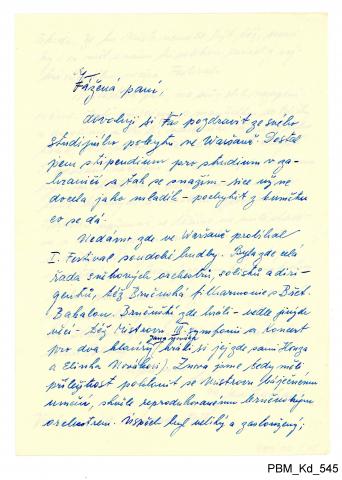 Vážená paní,
dovoluji si Vás pozdravit ze svého
studijního pobytu ve Varšavě. Dostal
jsem stipendium pro studium v za-
hraničí a tak se snažím - sice už ne
docela jako mladík - pochytit z kumštu
co se dá.
Nedávno zde ve Varšavě probíhal
I. Festival soudobé hudby. Byla zde celá
řada světových orchestrů, solistů a diri-
gentů, též Brněnská filharmonie s Břet.
Bakalou. Brněnští zde hráli - vedle jiných
věcí - též Mistrovu III. symfonii a koncert
pro dva klavíry (hráli si jej zde sami Honza
a Eliška Novákovi). Znova jsme tedy měli
příležitost poklonit se Mistrovu báječnému
umění, skvěle reprodukovanému brněnským
orchestrem. Úspěch byl veliký a zasloužený;
PBM_Kd_545